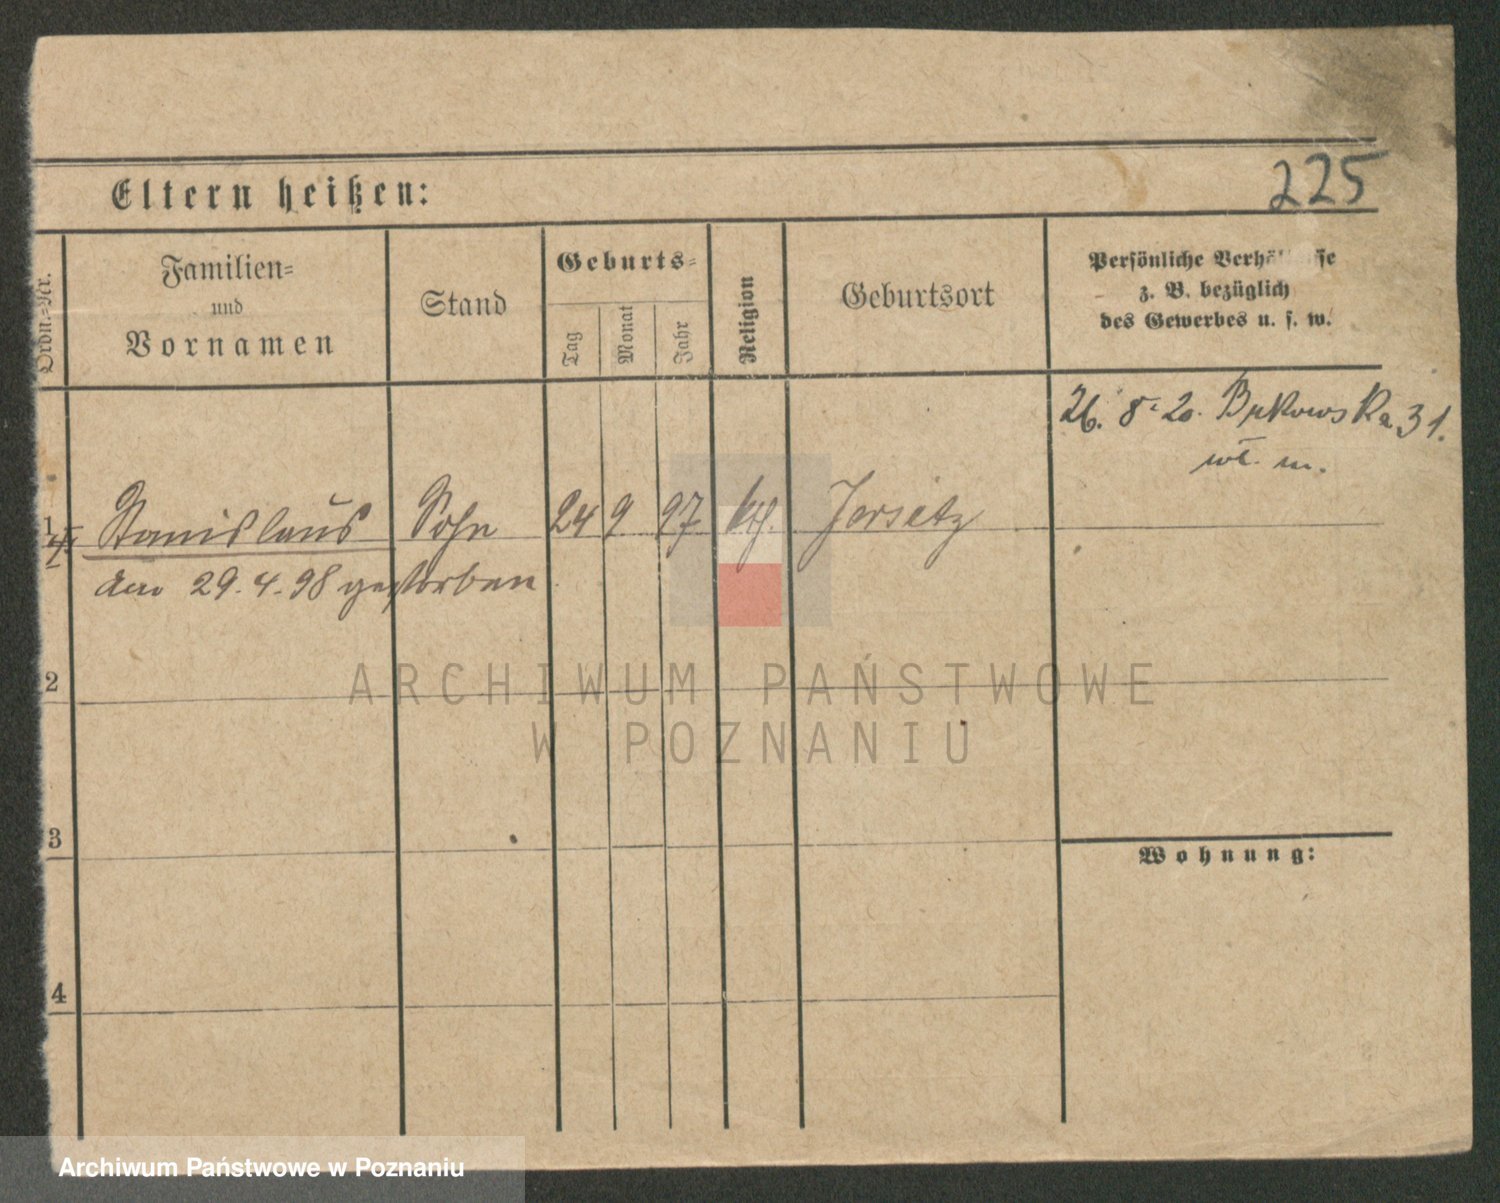 225
Eltern heißen:
Ordn.-Nr.
Familien-
und
Vornamen
Stand
Geburts-
Tag
Monat
Jahr
Religion
Geburtsort
Persönliche Verhältnisse
z. B. bezüglich
des Gewerbes u. s. w.
26. 8. 20. Bukowska 31.
wł. m.
1 Stanislaus Sohn 24 9 97 kth. Jersitz
am 29.4.98 gestorben.
2
3
Wohnung:
4
ARCHIWUM PAŃSTWOWE
W POZNANIU
Archiwum Państwowe w Poznaniu